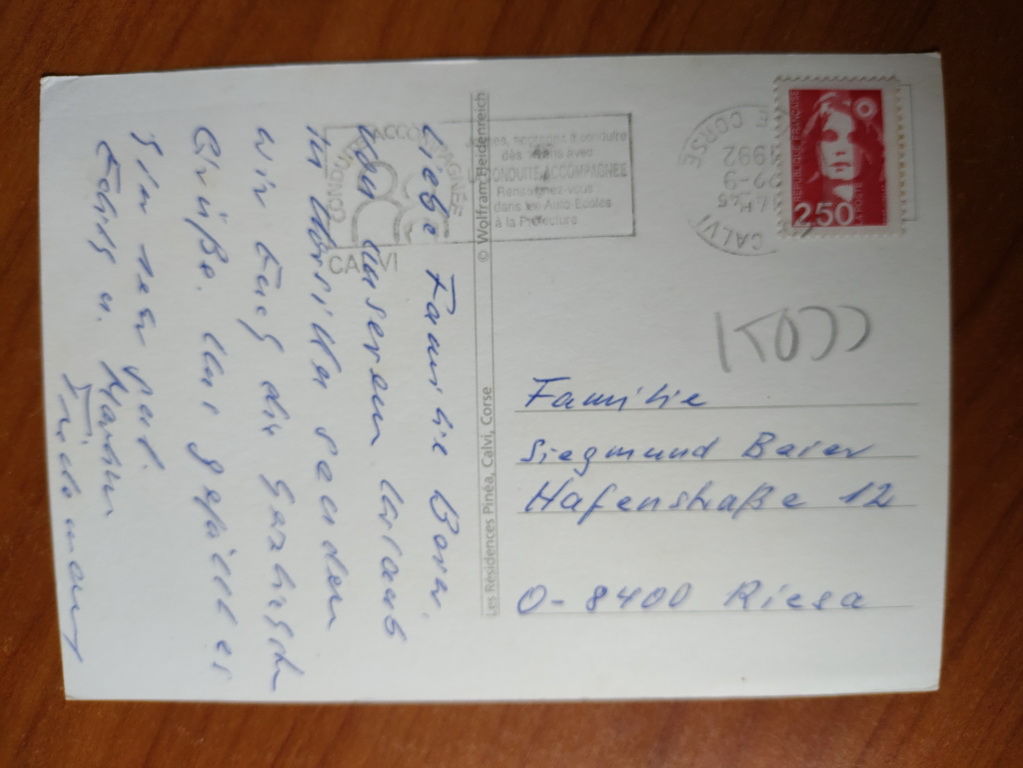 Liebe Familie
von unserem Urlaub
in Korsika senden
wir Euch die herzlichsten
Grüße. Uns gefällt es
hier sehr gut.
u.
© Wolfram Heidenreich
Les Résidences Pinéa, Calvi, Corse
CONDUITE ACCOMPAGNÉE
CALVI
Jeunes, apprenez à conduire
dès 16 ans avec
LA CONDUITE ACCOMPAGNÉE
Renseignez-vous :
dans les Auto-Ecoles
à la Préfecture
CALVI
1992
CORSE
REPUBLIQUE FRANÇAISE
LA POSTE
2,50
Familie
Siegmund Baier
Hafenstraße 12
O-8400 Riesa